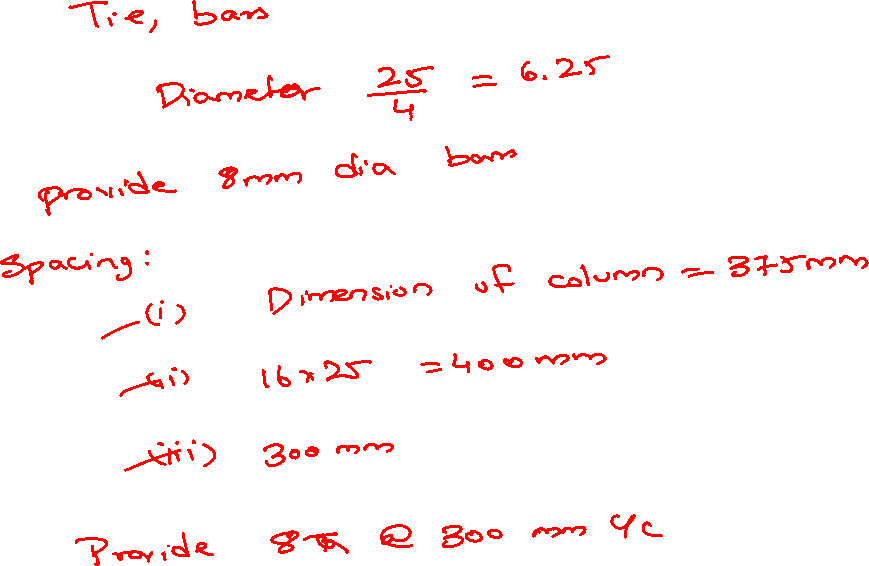 Tie, bars
Diameter 25/4 = 6.25
provide 8mm dia bars
Spacing:
(i) Dimension of column = 375mm
(ii) 16x25 = 400 mm
(iii) 300 mm
Provide 8 @ 300 mm c/c